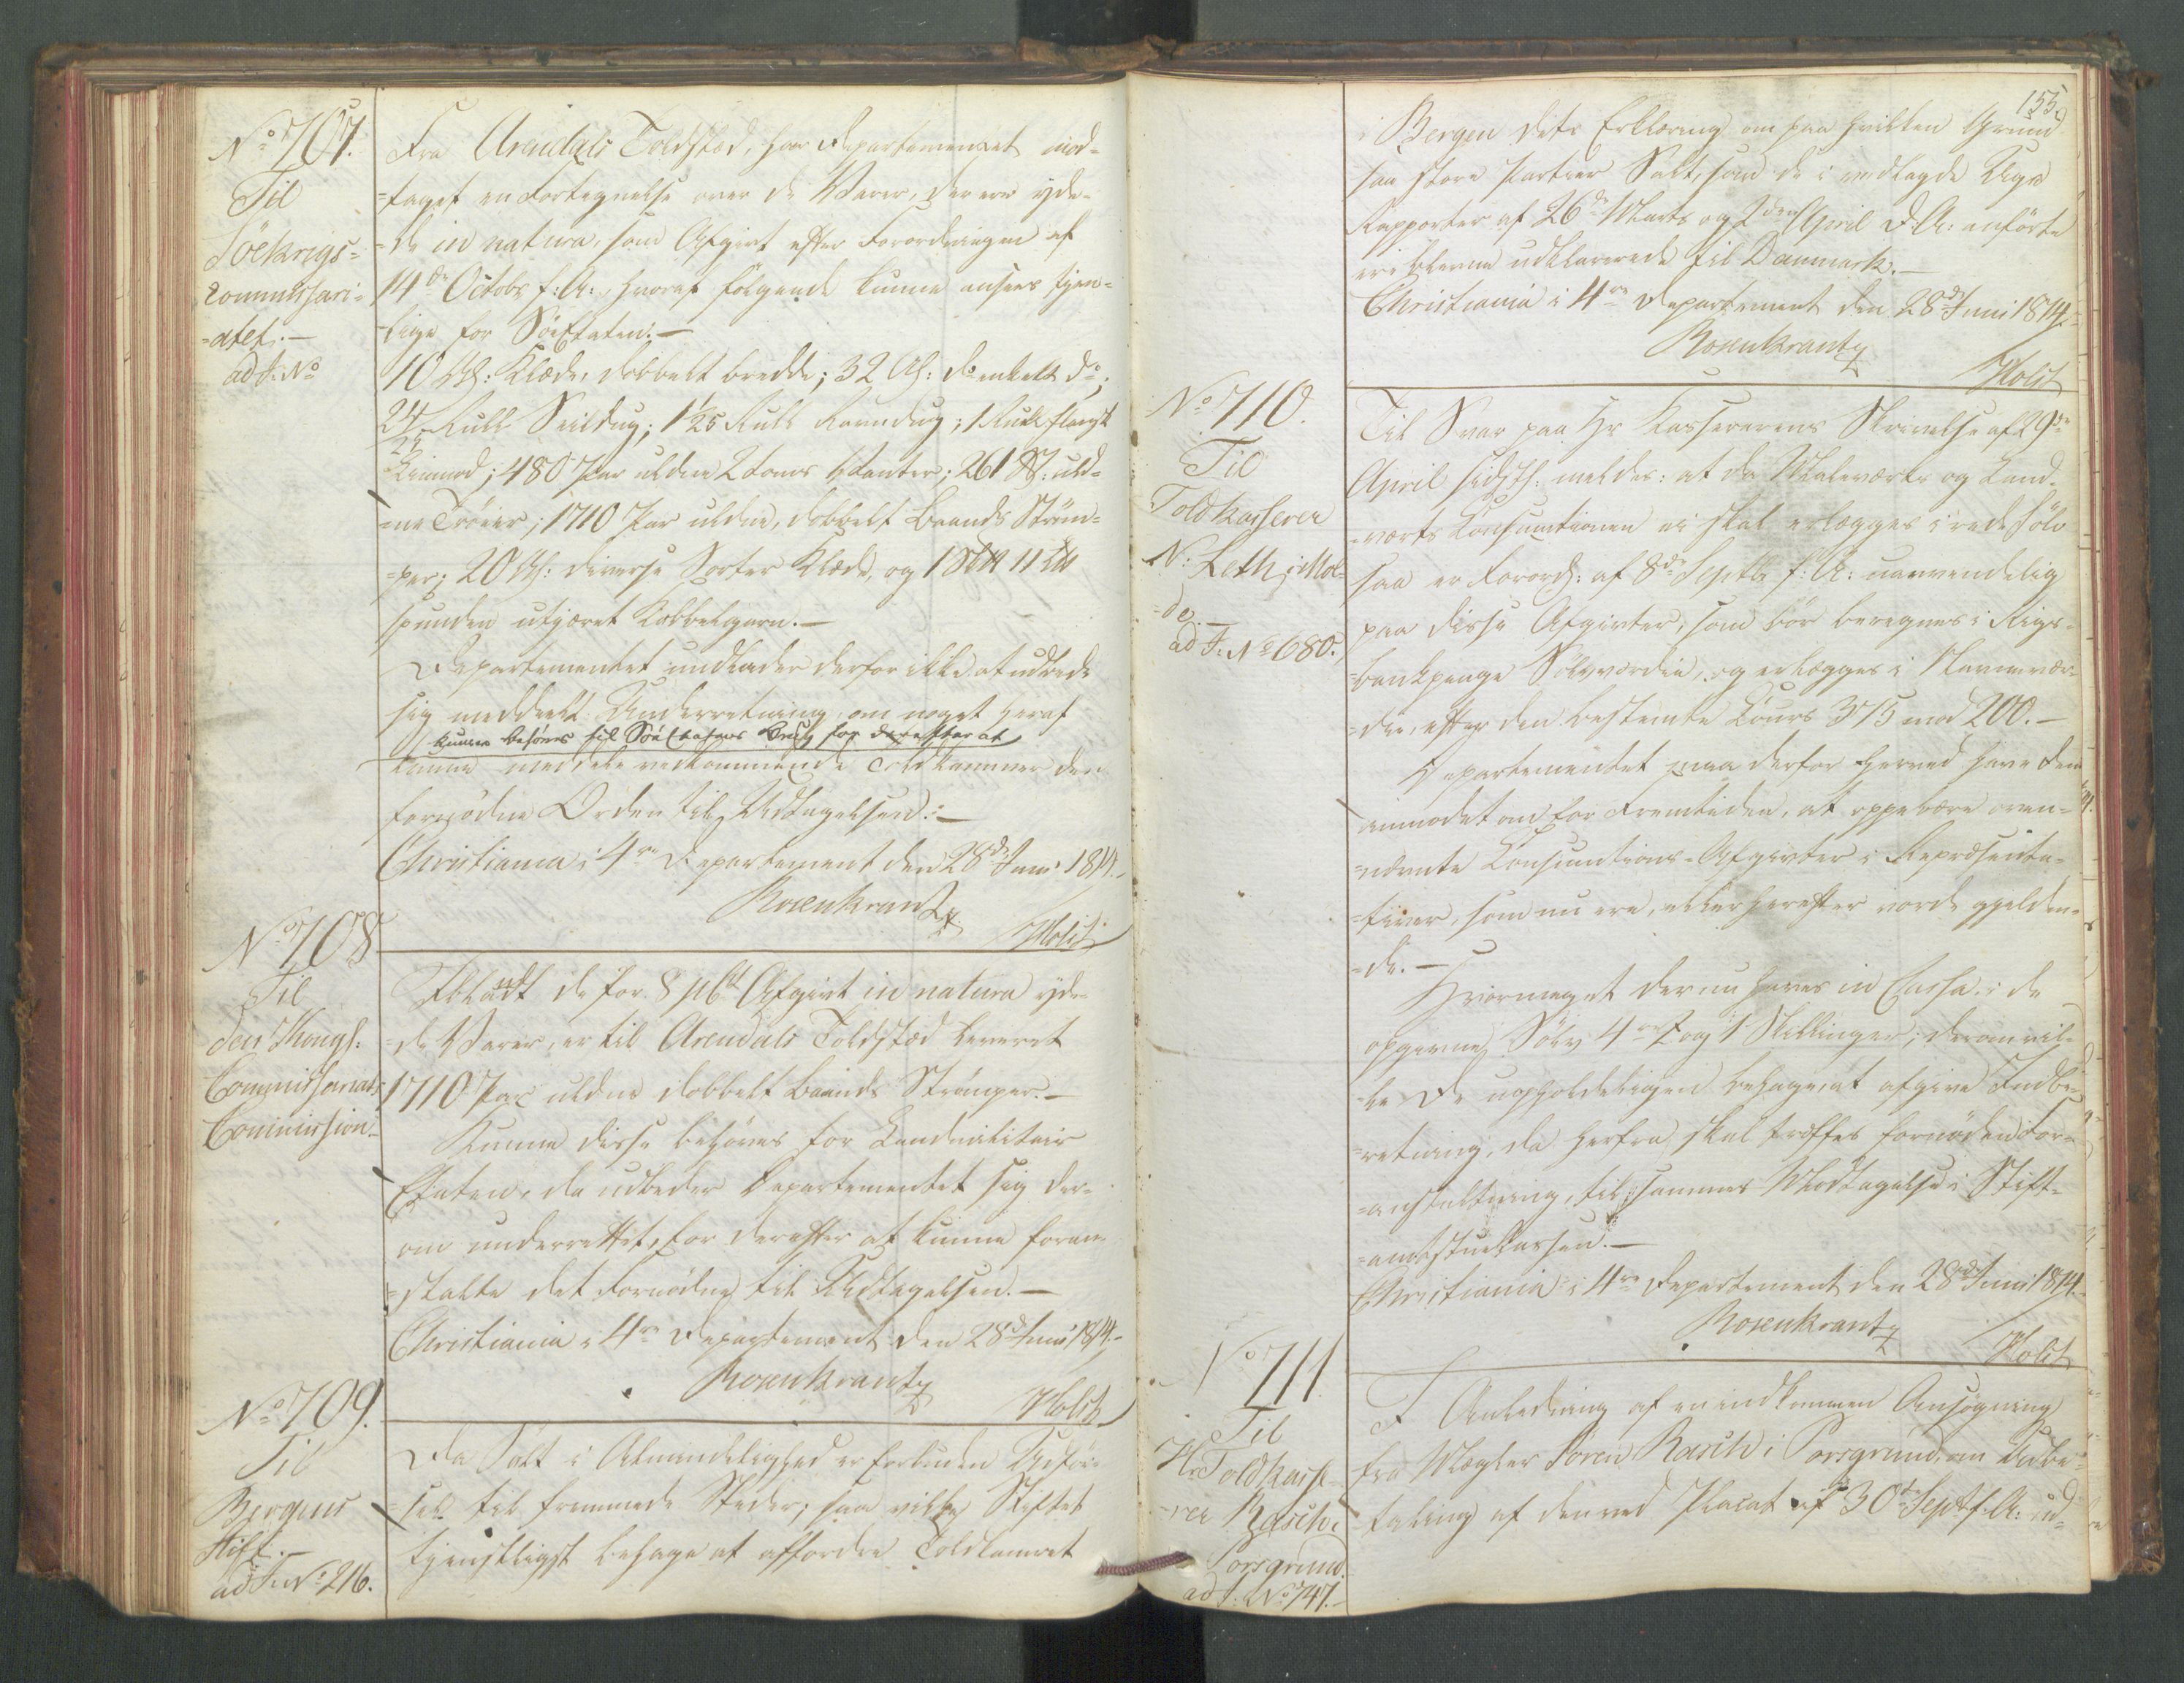 No 707.
Til
Söekrigs-
commissari-
-atet. -
ad J: No
Fra Arendals Toldsted, har Departementet mod-
-taget en Fortegnelse over de Varer, der ere yde-
-de in natura, som Afgivt efter Forordningen af
14de Octobr f: A:, hvoraf følgende kunne ansees tjen-
-lige for Søe Etaten. -
10 Al: Klæde, dobbelt bredde; 32 Al: do enkelt do;
24/25 Rull Seildug; 1 1/25 Rull Ravndug; 1 Rull
480 Par uldne Vanter; 261 St: uld-
-ne Trøier; 1710 Par uldne, dobbelt Baands Strøm-
-per; 20 Al: diverse Sorter Klæde, og 1 11
spunden utjæret Kabbelgarn. -
Departementet undlader derfor ikke at udbede
sig meddeelt Underretning, om noget heraf
kunne behøves til Søe Etatens Brug for derefter at
kunne meddele vedkommende Toldkammer den
fornødne Orden til Udtagelsen. -
Christiania i 4re Departement den 28de Juni 1814. -
Rosenkrantz
/Holst
No 708
Til
den Kongl:
Commissariats
Commission
Iblandt de for 8 pCt Afgivt in natura yde-
-de Varer, er til Arendals Toldsted leveret
1710 Par uldne dobbelt Baands Strømper. -
Kunne disse behøves for Landmilitair
Etaten, da udbeder Departementet sig der-
om underrettet, for derefter at kunne foran-
-stalte det Fornødne til Udtagelsen. -
Christiania i 4re Departement den 28d Juni 1814. -
Rosenkrantz
/Holst
No 709.
Til
Bergens
Stift. -
ad J: No 216.
Da Salt i Almindelighed er forbuden Udfør-
-sel til fremmede Steder; saa ville Stiftet
tjenstligst behage at affordre Toldkamret
155.
i Bergen dets Erklæring om paa hvilken Grund
saa store Partier Salt, som de i vedlagde Uge
Rapporter af 26de Marts og 2den April d: A: anførte
ere blevne udklarerede til Danmark. -
Christiania i 4re Departement den 28d Juni 1814. -
Rosenkrantz
/Holst
No 710.
Til
Toldkasserer
N: Leth i Mol-
-de. -
ad J: No 680.
Til Svar paa Hr Kassererens Skrivelse af 29de
April sidstl: meldes: at da Maleværks og Land-
-værts Konsumtionen ei skal erlægges i rede Sølv
saa er Forordn: af 8de Septbr f: A: uanvendelig
paa disse Afgivter, som bør beregnes i Rigs-
-bankpenge Sølvværdie, og erlægges i Navnevær-
-die, efter den bestemte Cours 375 mod 200. -
Departementet maa derfor herved have Dem
anmodet om for Fremtiden, at oppebære oven-
-nævnte Konsumtions-Afgivter i Repræsenta-
-tiver, som nu ere, eller herefter vorde gjelden-
-de. -
Hvormeget der nu haves in Cassa i de
opgivne Sølv 4re 2 og 1 Skillinger; derom vil-
-le De uopholdeligen behage at afgive Indbe-
-retning, da herfra skal træffes fornøden For-
-anstaltning, til sammes Modtagelse i Stift-
-amtstuekassen. -
Christiania i 4re Departement den 28d Juni 1814. -
Rosenkrantz
/Holst
No 711.
Til
Hr Toldkasse-
-rer Rasch i
Porsgrund.
ad J: No 747. -
I Anledning af en indkommen Ansøgning
fra Mægler Søren Rasch i Porsgrund, om Udbe-
-taling af den ved Placat af 30d Sept f: A: ud-